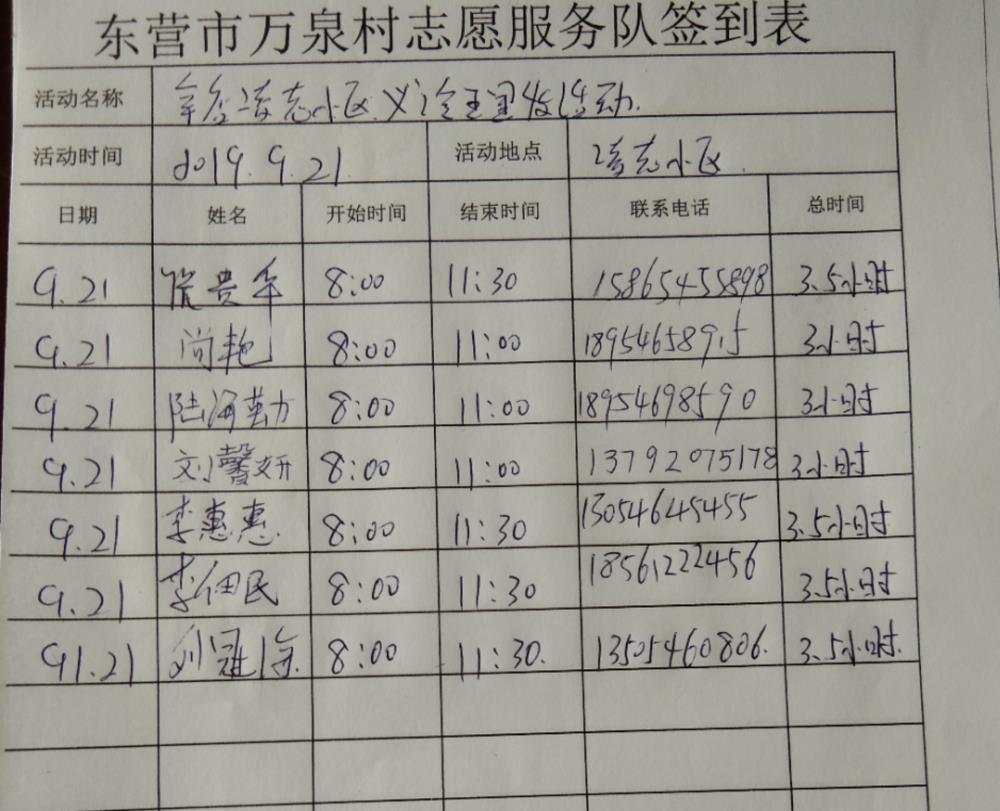 东营市万泉村志愿服务队签到表
活动名称 小区义诊
活动时间 2019.9.21 活动地点 志小区
日期 姓名 开始时间 结束时间 联系电话 总时间
9.21 贵年 8:00 11:30 15865455898 3.5小时
9.21 尚艳 8:00 11:00 3小时
9.21 陆海勤 8:00 11:00 18954698590 3小时
9.21 刘馨妍 8:00 11:00 13792075178 3小时
9.21 李惠惠 8:00 11:30 13054645455 3.5小时
9.21 李佃民 8:00 11:30 18561222456 3.5小时
9.21 刘冠 8:00 11:30. 13505460806. 3.5小时.